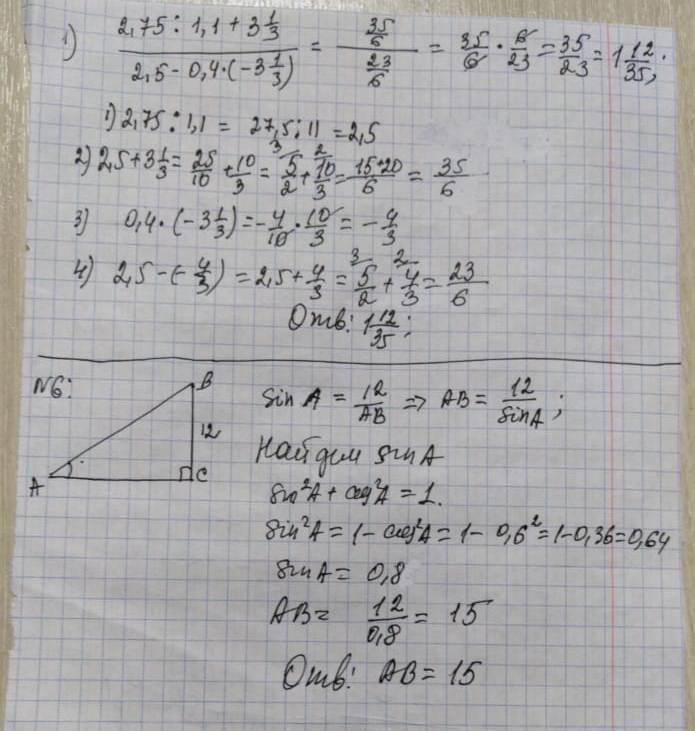 1) (2,75 : 1,1 + 3 1/3) / (2,5 - 0,4 · (-3 1/3)) = (35/6) / (23/6) = 35/6 · 6/23 = 35/23 = 1 12/35;
1) 2,75 : 1,1 = 27,5 : 11 = 2,5
2) 2,5 + 3 1/3 = 25/10 + 10/3 = ³5/2 + ²10/3 = (15+20)/6 = 35/6
3) 0,4 · (-3 1/3) = - 4/10 · 10/3 = - 4/3
4) 2,5 - (- 4/3) = 2,5 + 4/3 = ³5/2 + ²4/3 = 23/6
Отв: 1 12/35;
N6:
B
12
A
C
sin A = 12/AB => AB = 12/sinA;
Найдем sin A
sin²A + cos²A = 1.
sin²A = 1 - cos²A = 1 - 0,6² = 1 - 0,36 = 0,64
sin A = 0,8
AB = 12/0,8 = 15
Отв: AB = 15